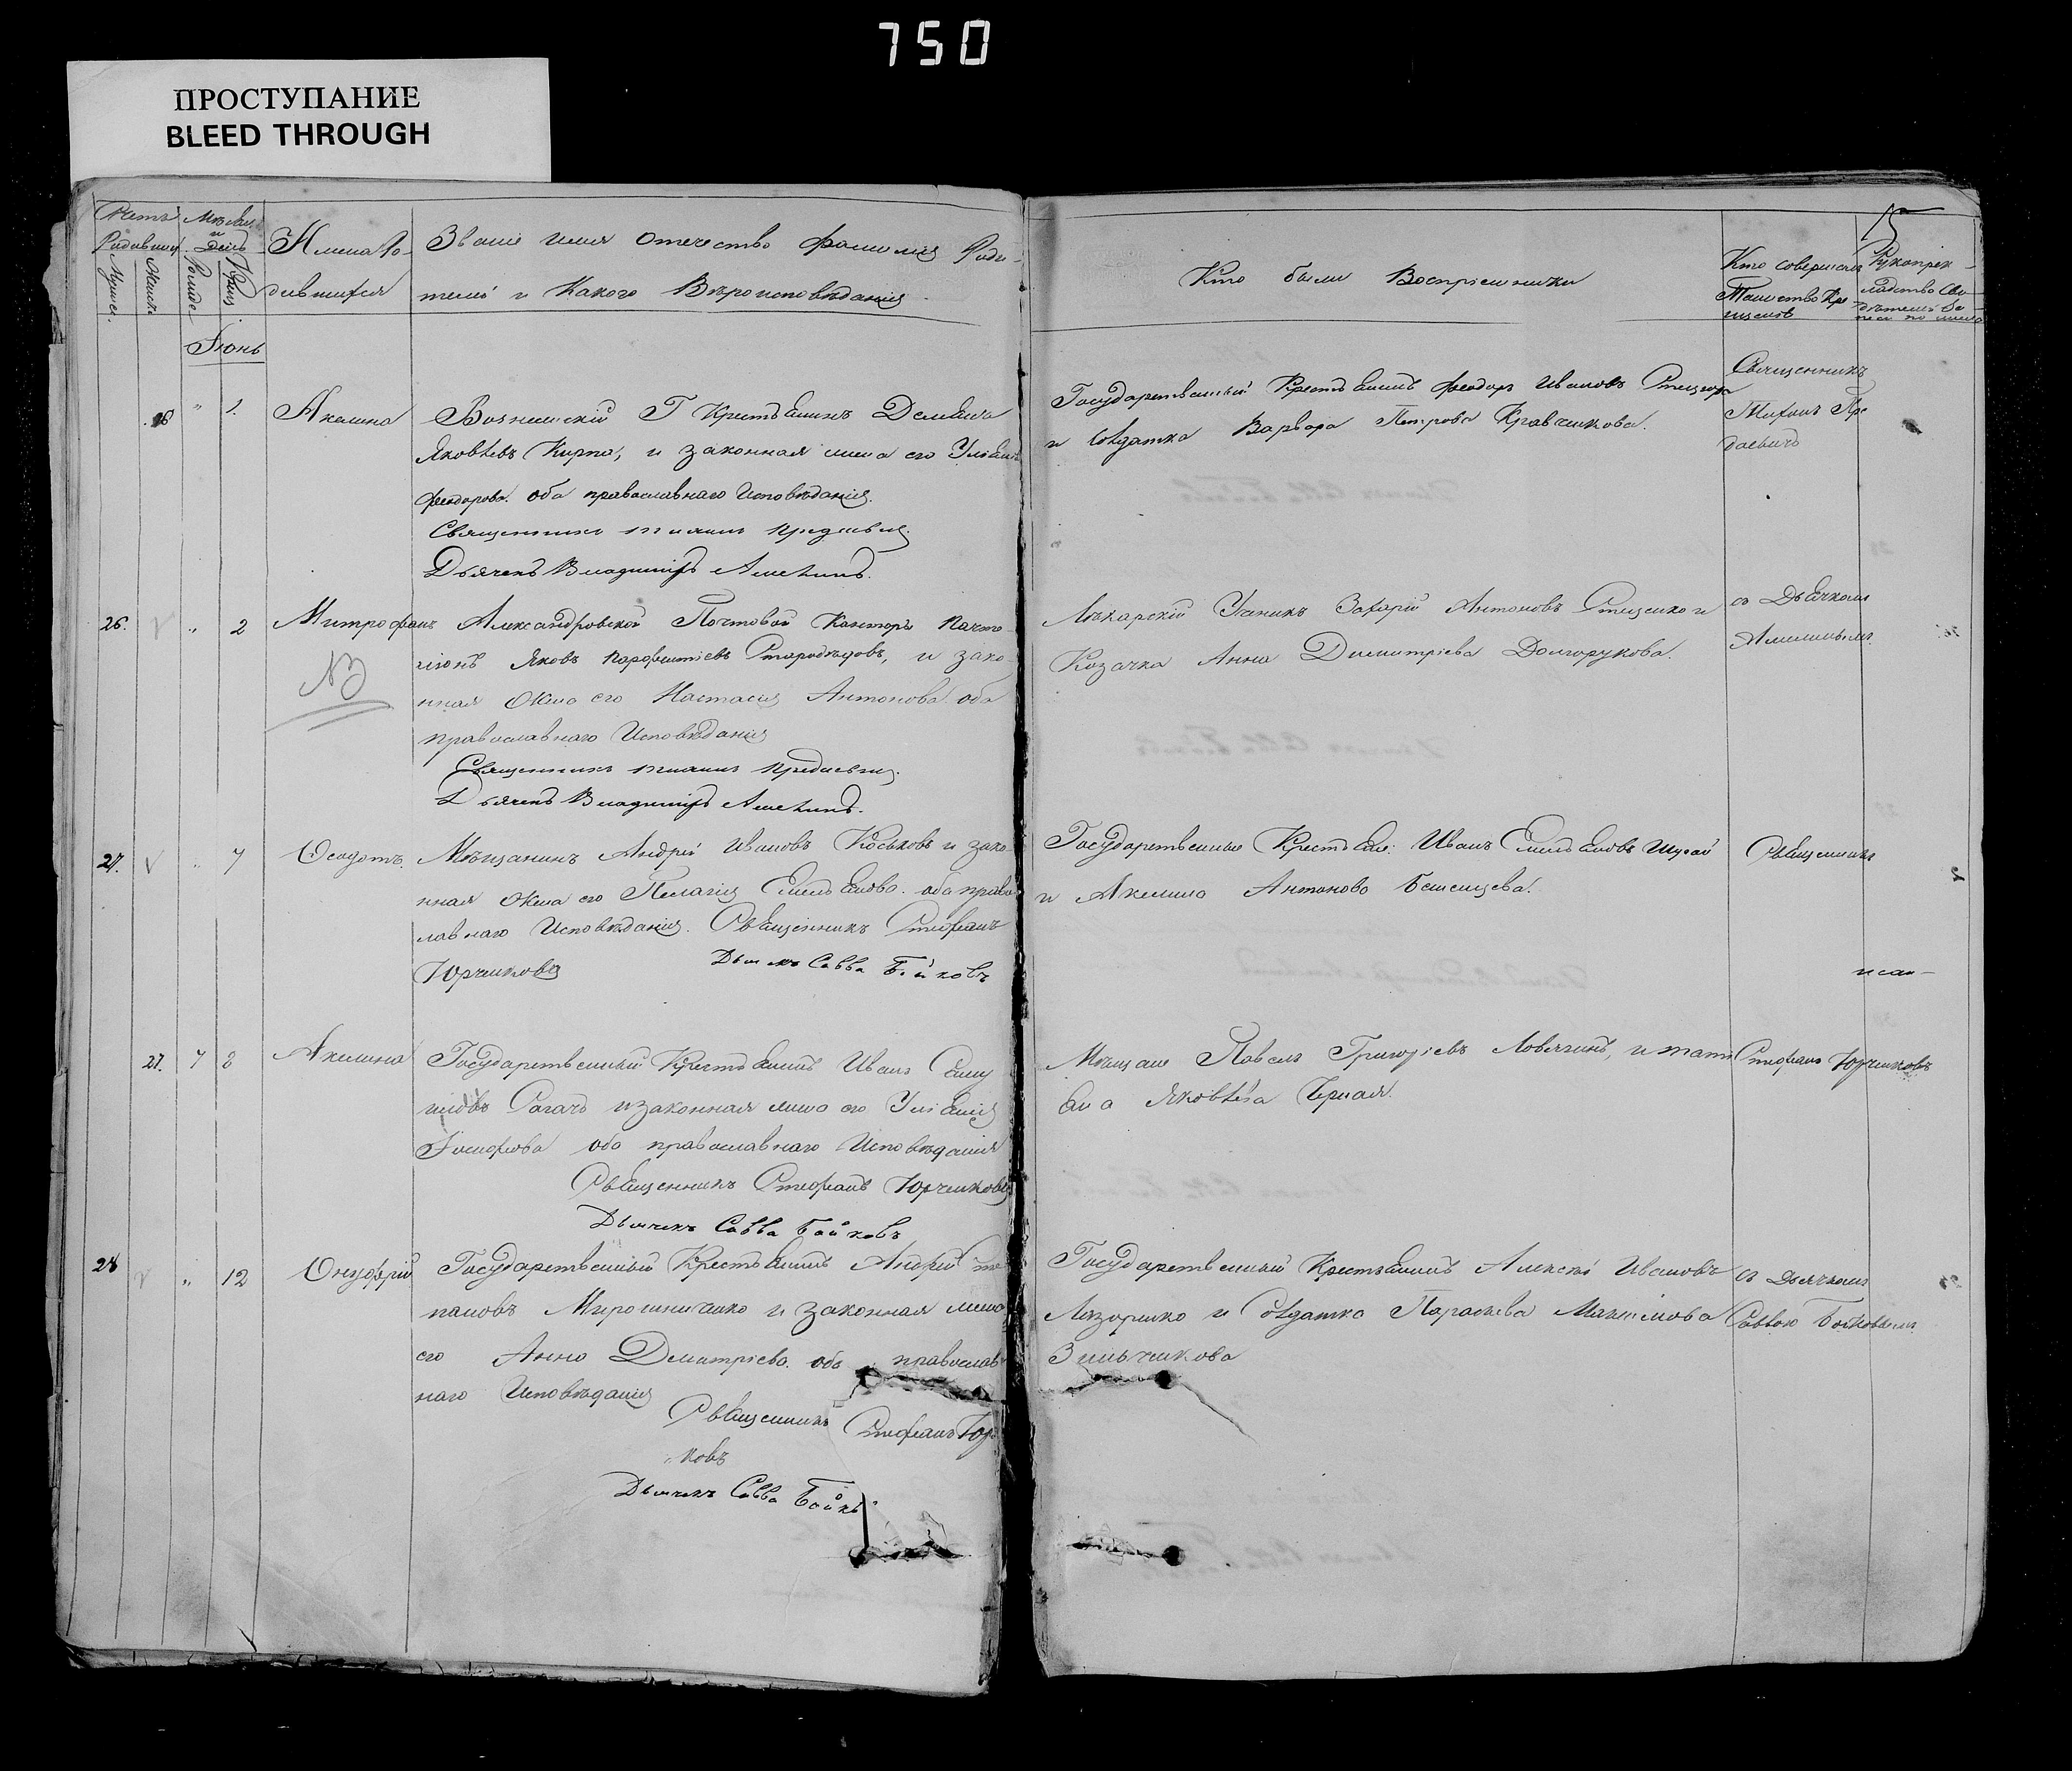 750
ПРОСТУПАНИЕ
BLEED THROUGH
Счетъ Родивших
Мужес.
Женск
Мѣсяцъ и День
Рожде
Крещ
Имена Ро-
дившихся
Званіе имя отечество фамилія Роди-
телей и Какого Вѣроисповѣданія
Кто были Воспріемники
Кто совершалъ
Таинство Кре
щенія
Рукоприк-
ладство Сви-
дѣтелей
15
Іюнь
26 " 1. Акилина
Вознесенскій Г Крестьянинъ Демьянъ
Яковлевъ Кирпа, и законная жена его Ульяна
Феодорова. оба православнаго Исповѣданія.
Священникъ Предаевич
Дьячекъ Владимиръ
Государственный Крестьянинъ Феодоръ Ивановъ
и Солдатка Варвара Петрова Кравчикова.
Священникъ
26. " 2 Митрофанъ
NB
Александровской Почтовой Канторы Почта
ліонъ Яковъ Парфентіевъ Стародѣдовъ, и зако-
нная Жена его Настасія Антонова оба
православнаго Исповѣданія
Священникъ Предаевич
Дьячекъ Владимиръ
Лѣкарскій Ученикъ Захарій Антоновъ и
Козачка Анна Димитріева Долгорукова.
съ Дьячкомъ
27. " 7 Феодотъ
Мѣщанинъ Андрей Ивановъ Коськовъ и зако-
нная Жена его Пелагія Емельянова. оба право
лавнаго Исповѣданія. Священникъ Стефанъ
Юрченковъ Дьячекъ Савва Бойковъ
Государственные Крестьяне: Иванъ Емельяновъ
и Акилина Антонова
Священникъ
27. 7 8 Акилина
Государственный Крестьянинъ Иванъ Саму
иловъ Рогачъ и законная жена его Ульянія
Іосифова оба православнаго Исповѣданія
Священникъ Стефанъ Юрченковъ
Дьячекъ Савва Бойковъ
Мѣщане Павелъ Григорьевъ Ловягинъ, и Тать
яна Яковлева Черная.
Стефанъ Юрченковъ
28 " 12 Онуфрій
Государственный Крестьянинъ Андрей
Мирошниченко и законная жена
его Анна Дмитріева. оба православ
наго Исповѣданія
Священникъ Стефанъ Юр
ковъ
Дьячекъ Савва Бойк
Государственный Крестьянинъ Алексѣй Ивановъ
Лазоренко и Солдатка Параскева Максимова
Зинченкова
съ Дьячкомъ
Саввою Бойковымъ